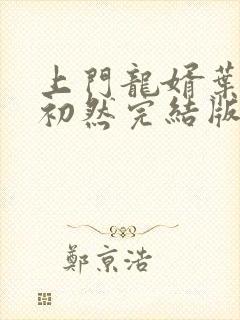 上門龍婿葉
初然完結版
鄭京浩